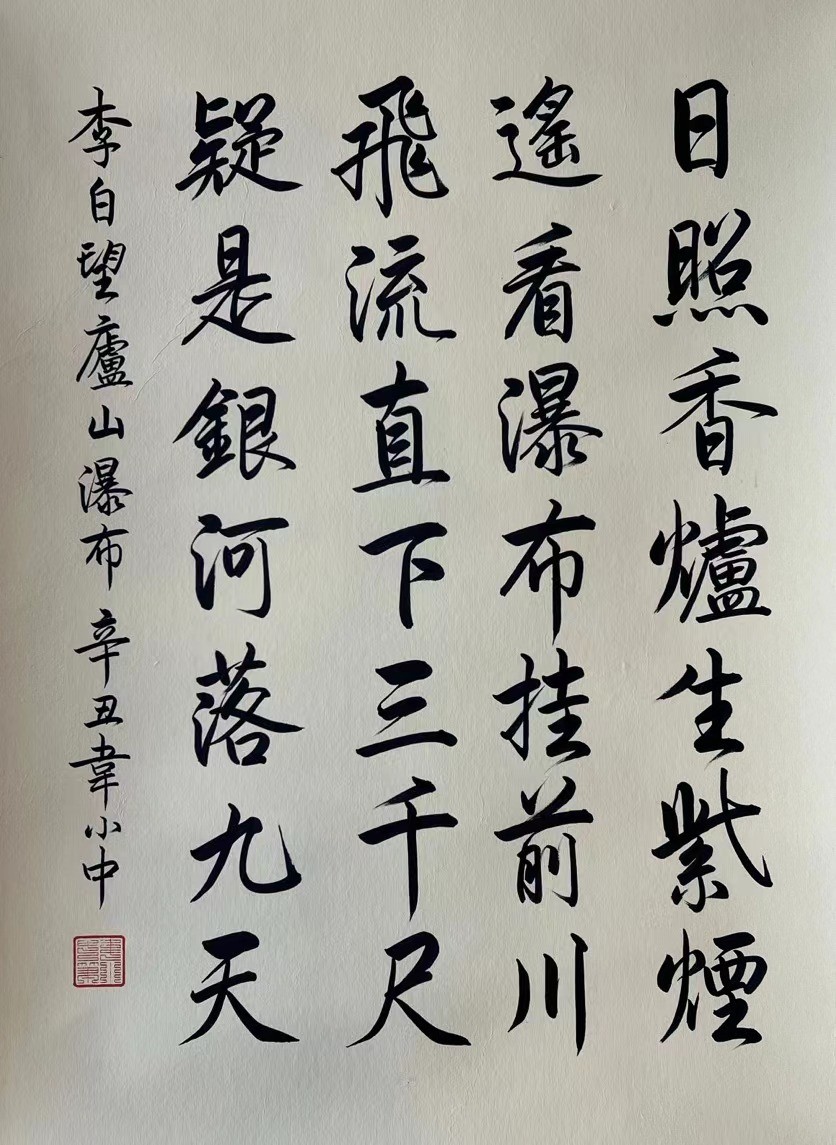 日照香爐生紫煙
遙看瀑布挂前川
飛流直下三千尺
疑是銀河落九天
李白望廬山瀑布辛丑韋小中